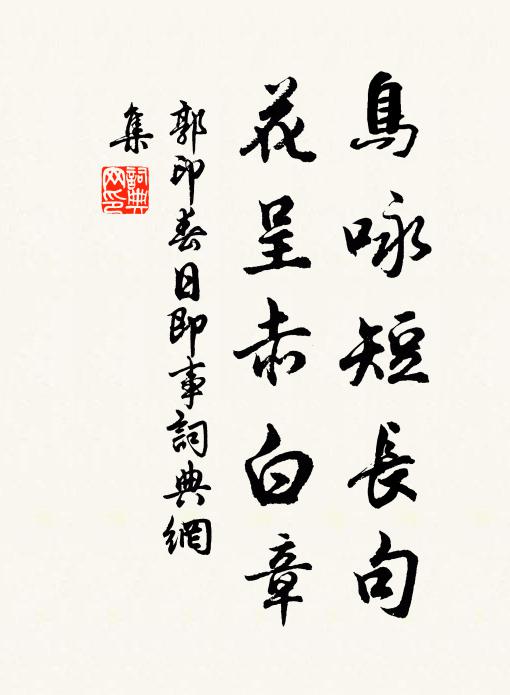 鳥咏短長句
花呈赤白章
郭印春日即事詞典網
集
詞典網印